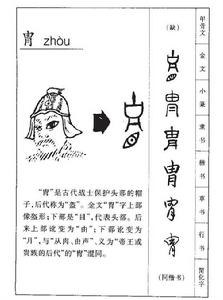 胄 zhòu
“胄”是古代战士保护头部的帽
子,后代称为“盔”。金文“胄”字上部
像盔形;下部是“目”,代表头部。后
来上部讹变为“由”;下部讹变为
“月”,与“从肉、由声”、义为“帝王或
贵族的后代”的“胄”混同。
(缺)
胄
胄
胄
胄
胄
(同楷书)
甲骨文
金文
小篆
隶书
楷书
草书
行书
简化字